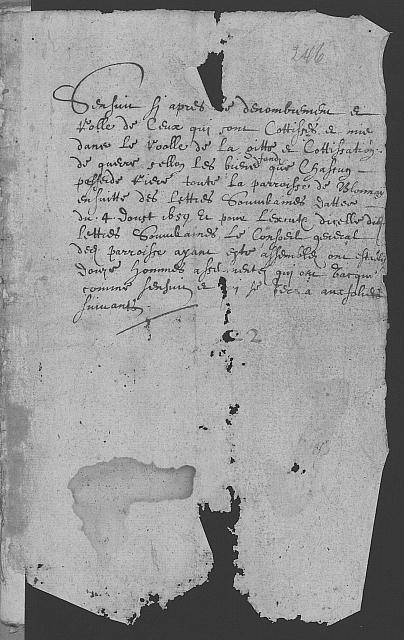 246
Sensuit sy apres le denombrement et
Rolle de Ceux qui sont Cottisés et mis
dans le Roolle de la giette et Cottisation
de guerre sellon les biens fonds que Chascun
possede Riere toute la parroisse de Blonnay
ensuitte des lettres Souveraines dattée
du 4 doust 1659 Et pour Lexecutx dicelle
lettres Souveraines Le Conseil general
desd parroisse ayant este assemblés ont
douze hommes assermentés qui ont vacqué
comme sensuit et se verra aux
suivants
2